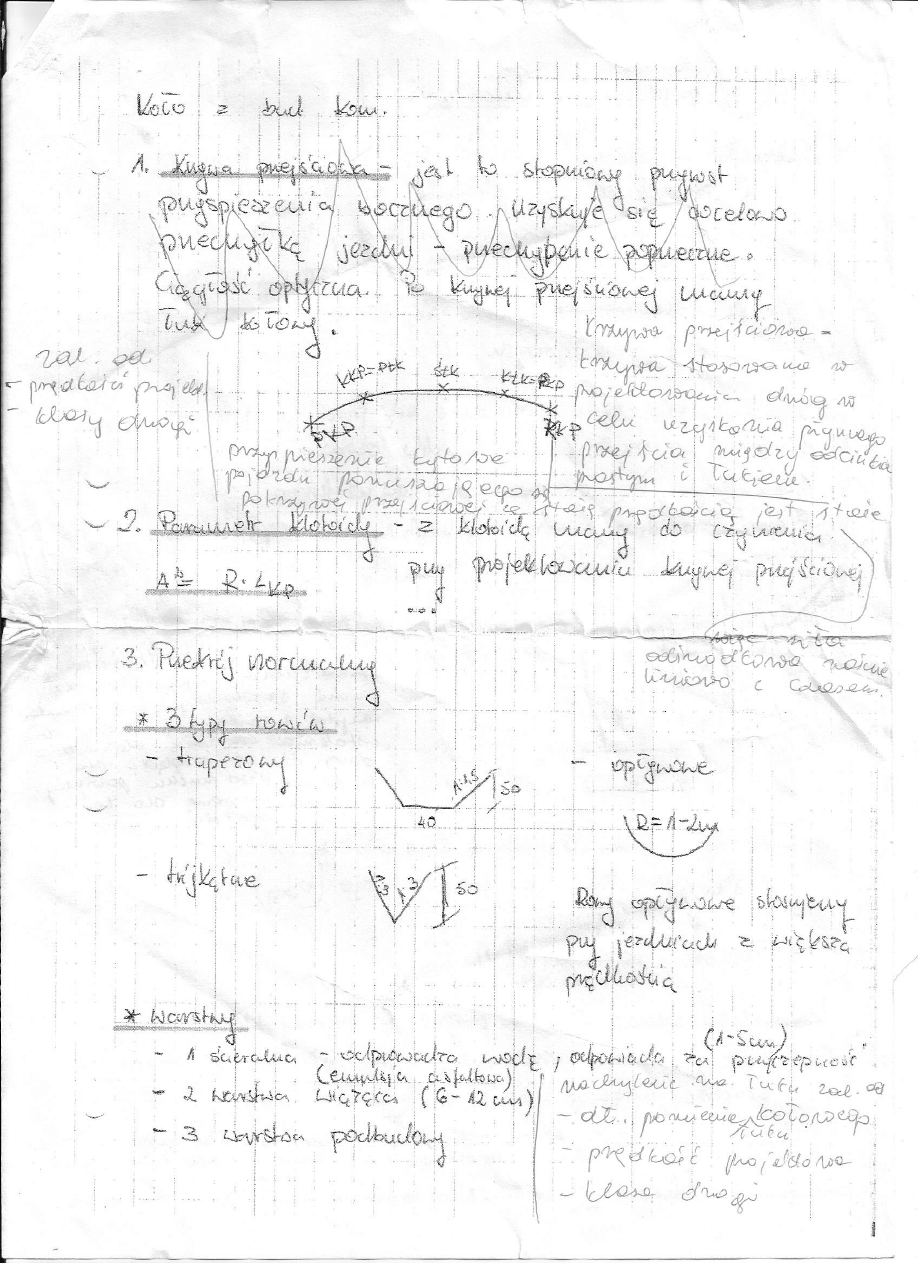 Koło z bud kom.
1. Krzywa przejściowa - jest to stopniowy przyrost
przyspieszenia bocznego. Uzyskuje się docelowo
przechyłkę jezdni - przechylenie poprzeczne.
Ciągłość optyczna. Po krzywej przejściowej mamy
łuk kołowy.
zal. od
- prędkości projekt.
- klasy drogi
KKP=PŁK
ŚŁK
KŁK=PKP
PKP
KKP
krzywa przejściowa -
krzywa stosowana w
projektowaniu dróg w
celu uzyskania płynnego
przejścia między odcinkiem
prostym i łukiem.
przyspieszenie kątowe
pojazdu poruszającego się
po krzywej przejściowej ze stałą prędkością jest stałe
2. Parametr klotoidy - z klotoidą mamy do czynienia
przy projektowaniu krzywej przejściowej
...
A² = R · LKP
więc siła
odśrodkowa rośnie
liniowo z czasem.
3. Przekrój normalny
* 3 typy rowów
- trapezowy
1:1,5
50
40
- opływowe
R=1-2m
- trójkątne
1:3
1:3
50
Rowy opływowe stosujemy
przy jezdniach z większa
prędkością
* warstwy
- 1 ścieralna - odprowadza wodę, odpowiada za przyczepność (1-5cm)
(emulsja asfaltowa)
- 2 warstwa wiążąca (6-12 cm)
- 3 warstwa podbudowy
nachylenie na łuku zal. od
- dł. promienia kołowego
łuku
- prędkość projektowa
- klasa drogi